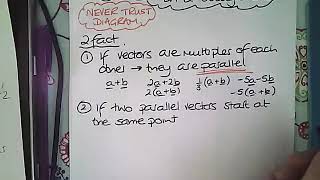 NEVER TRUST
DIAGRAM
2 fact.
① If vectors are multiples of each
other → they are parallel
a+b 2a+2b ½(a+b) -5a-5b
2(a+b) -5(a+b)
② If two parallel vectors start at
the same point